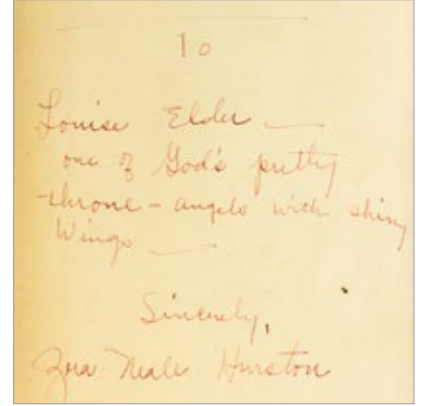 To
Louise Elder —
one of God's pretty
throne-angels with shiny
Wings —
Sincerely,
Zora Neale Hurston